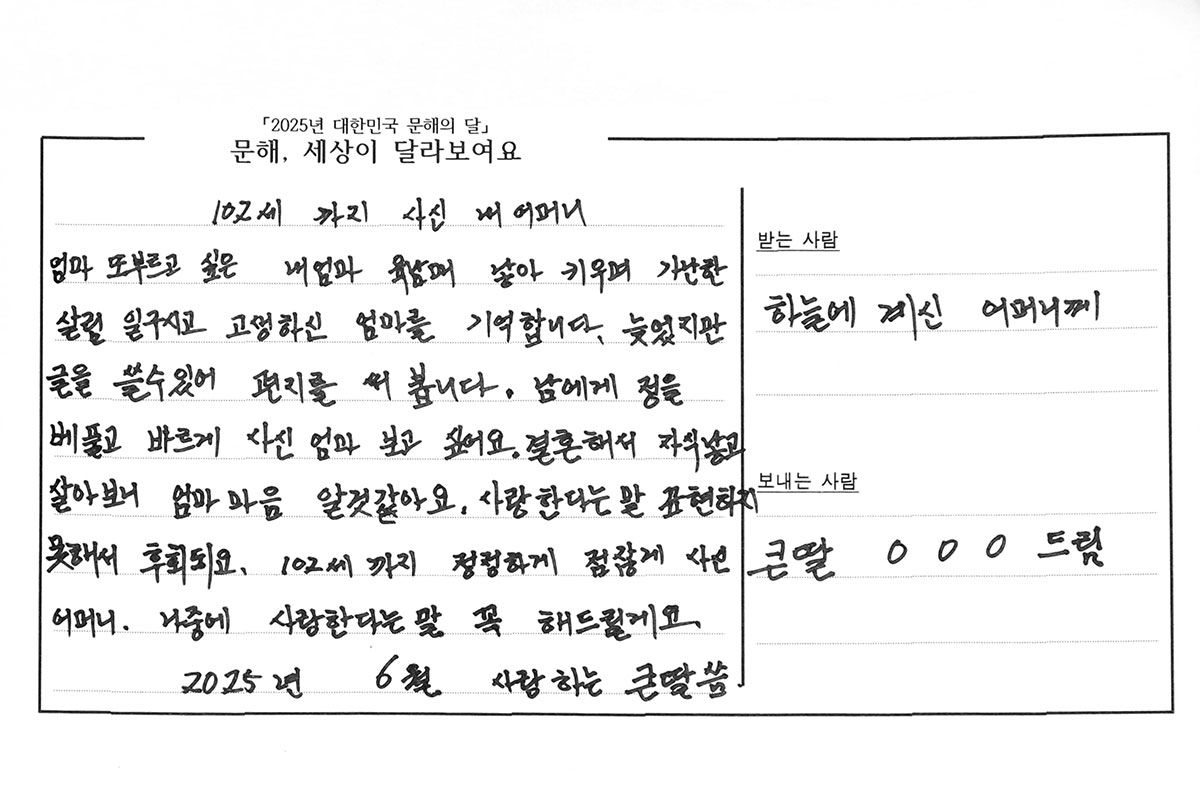 「2025년 대한민국 문해의 달」
문해, 세상이 달라보여요
102세 까지 사신 내 어머니
엄마 또부르고 싶은 내엄마 육남매 낳아 키우며 가난한
살림 일구시고 고생하신 엄마를 기억합니다. 늦었지만
글을 쓸수있어 편지를 써 봅니다. 남에게 정을
베풀고 바르게 사신 엄마 보고 싶어요. 결혼해서 자식낳고
살아보니 엄마마음 알것같아요. 사랑한다는 말 표현하지
못해서 후회되요. 102세 까지 정정하게 점잖게 사신
어머니. 나중에 사랑한다는 말 꼭 해드릴게요.
2025년 6월 사랑하는 큰딸씀
받는 사람
하늘에 계신 어머니께
보내는 사람
큰딸 O O O 드림